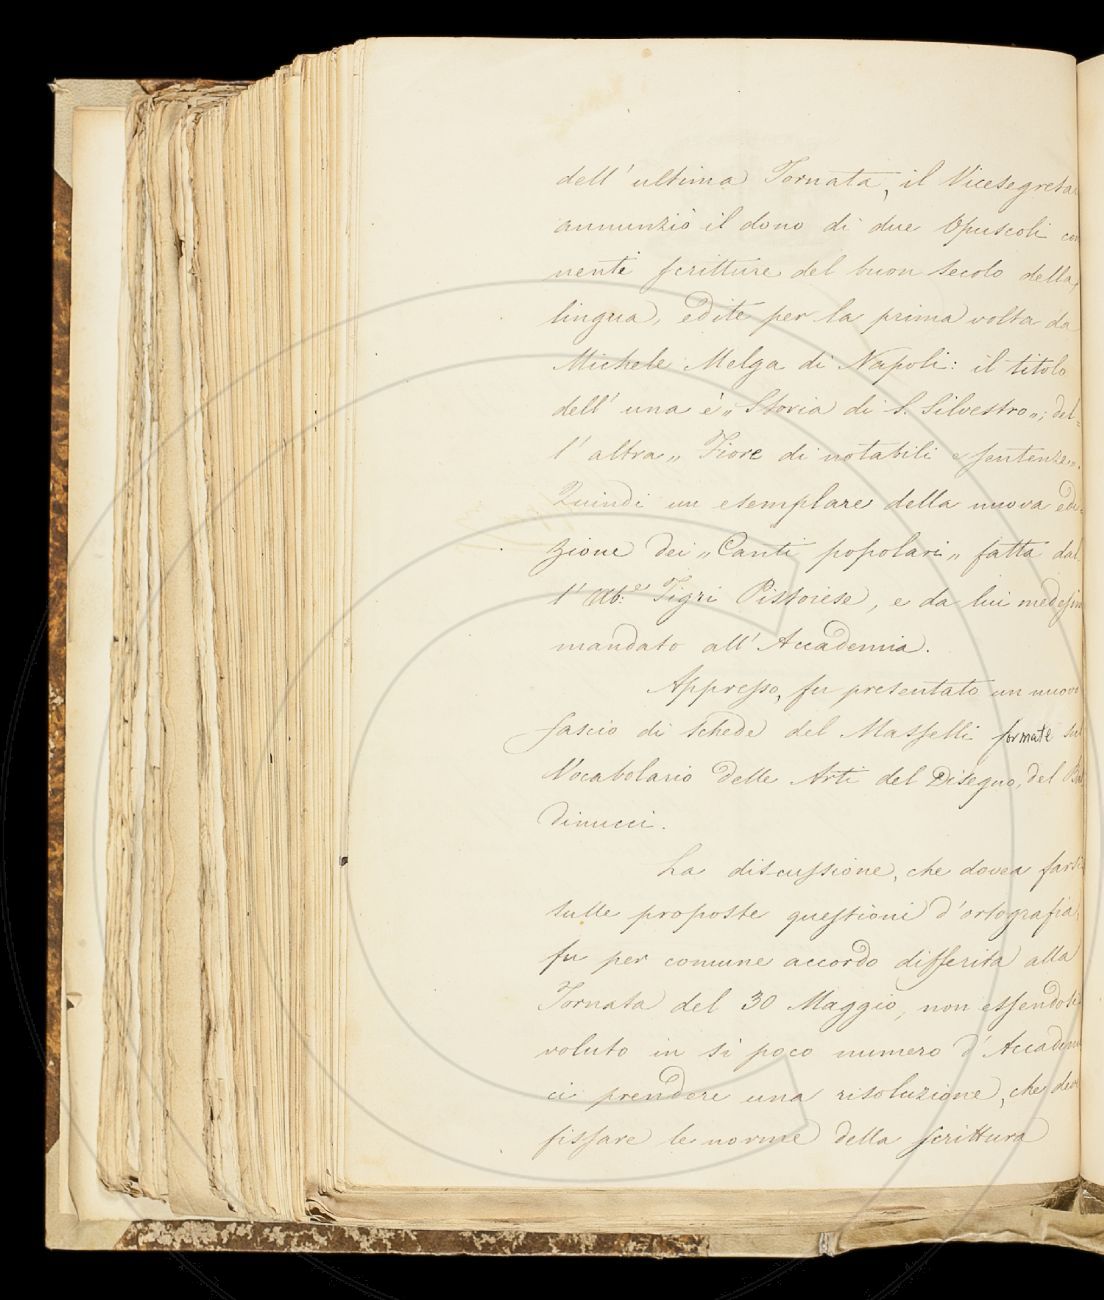 dell' ultima Tornata, il Vicesegreta
annunziò il dono di due Opuscoli con
nenti scritture del buon secolo della
lingua, edite per la prima volta da
Michele Melga di Napoli: il titolo
dell' una è „ Storia di S. Silvestro „; del-
l' altra „ Fiore di notabili e sentenze „.
Quindi un esemplare della nuova edi-
zione dei „ Canti popolari „ fatta dal
l' Ab.e Tigri Pistoiese, e da lui medesim
mandato all' Accademia.
Appresso, fu presentato un nuovo
fascio di Schede del Masselli formate sul
Vocabolario delle Arti del Disegno, del Bal
dinucci.
La discussione, che dovea farsi
sulle proposte questioni d'ortografia,
fu per comune accordo differita alla
Tornata del 30 Maggio, non essendosi
voluto in sì poco numero d' Accademi
ci prendere una risoluzione, che dev
fissare le norme della scrittura